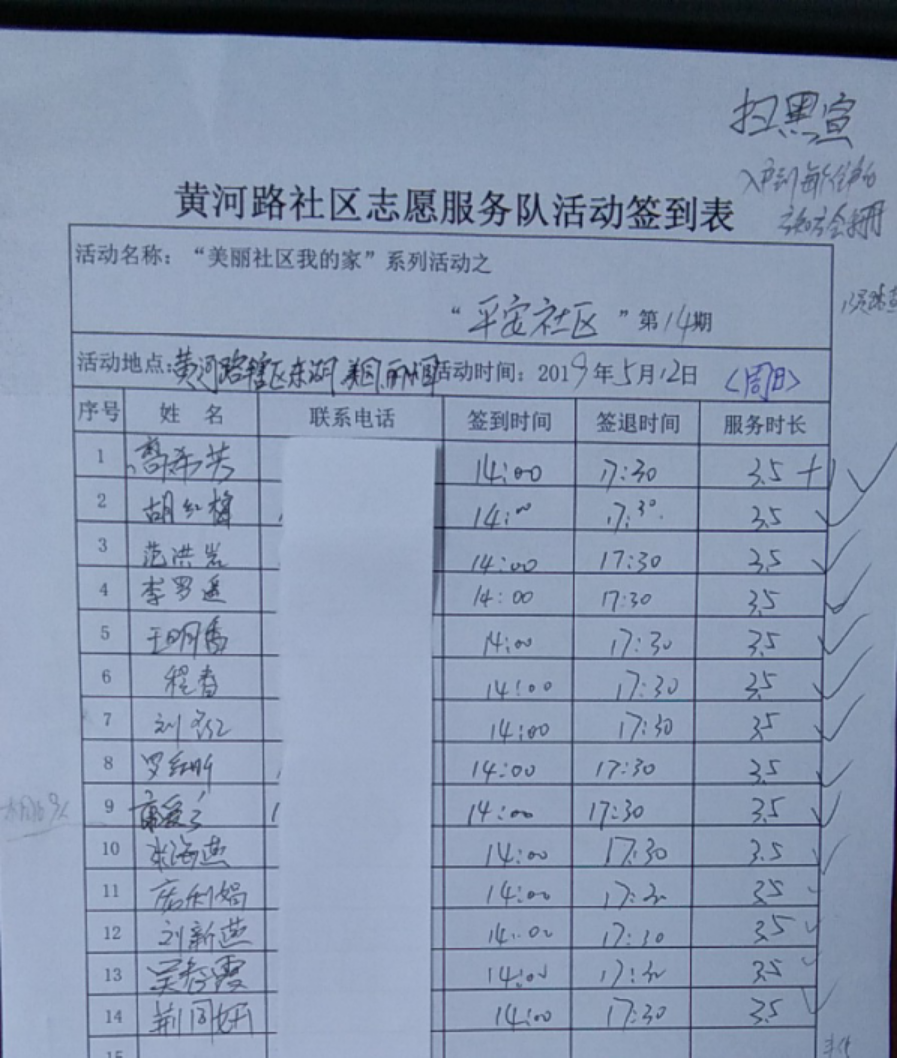 扫黑宣
黄河路社区志愿服务队活动签到表
活动名称：“美丽社区我的家”系列活动之
“平安社区”第14期
活动地点:黄河路辖区东湖 活动时间：2019年5月12日 〈周日〉
序号 姓 名 联系电话 签到时间 签退时间 服务时长
1 14:00 17:30 3.5 +1
2 胡红梅 14:00 17:30 3.5
3 范洪岩 14:00 17:30 3.5
4 李罗遥 14:00 17:30 3.5
5 14:00 17:30 3.5
6 程春 14:00 17:30 3.5
7 刘 14:00 17:30 3.5
8 罗红昕 14:00 17:30 3.5
9 14:00 17:30 3.5
10 张海燕 14:00 17:30 3.5
11 14:00 17:30 3.5
12 刘新燕 14:00 17:30 3.5
13 吴 霞 14:00 17:30 3.5
14 荆 14:00 17:30 3.5
15